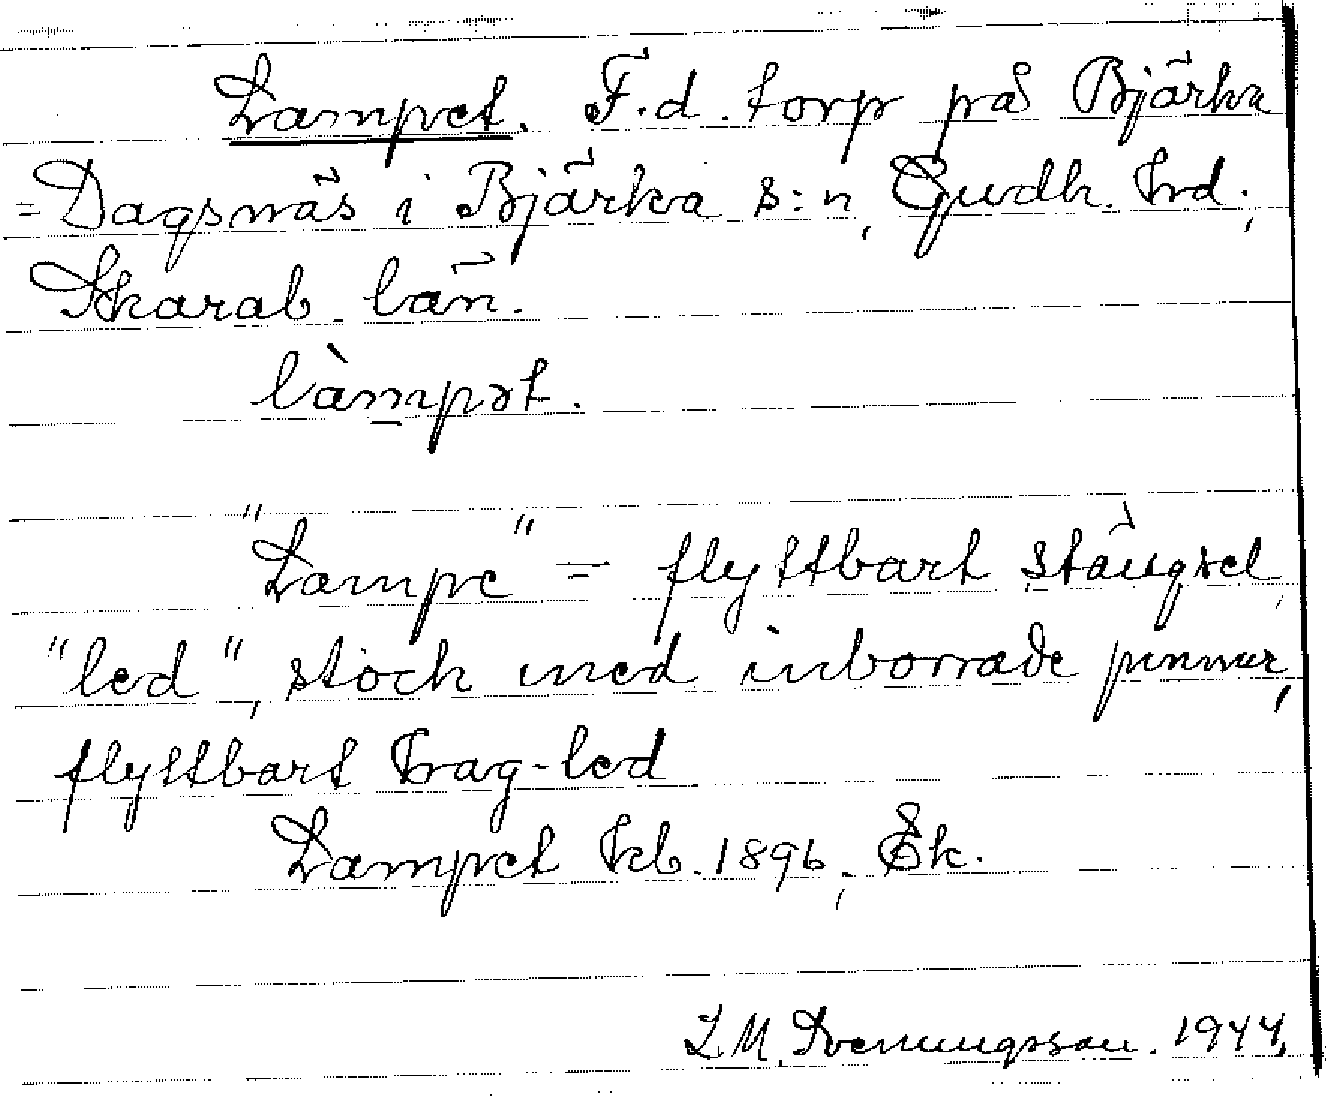 Lampet. F.d. torp på Bjärka
=Dagsnäs i Bjärka s:n, Gudh. hrd.,
Skarab. län.
làmpət.
"Lampe" = flyttbart stängsel,
"led", stock med inborrade pinnar,
flyttbart trag-led
Lampet kb. 1896, Ek.
Z.M. Svenungsson. 1944.